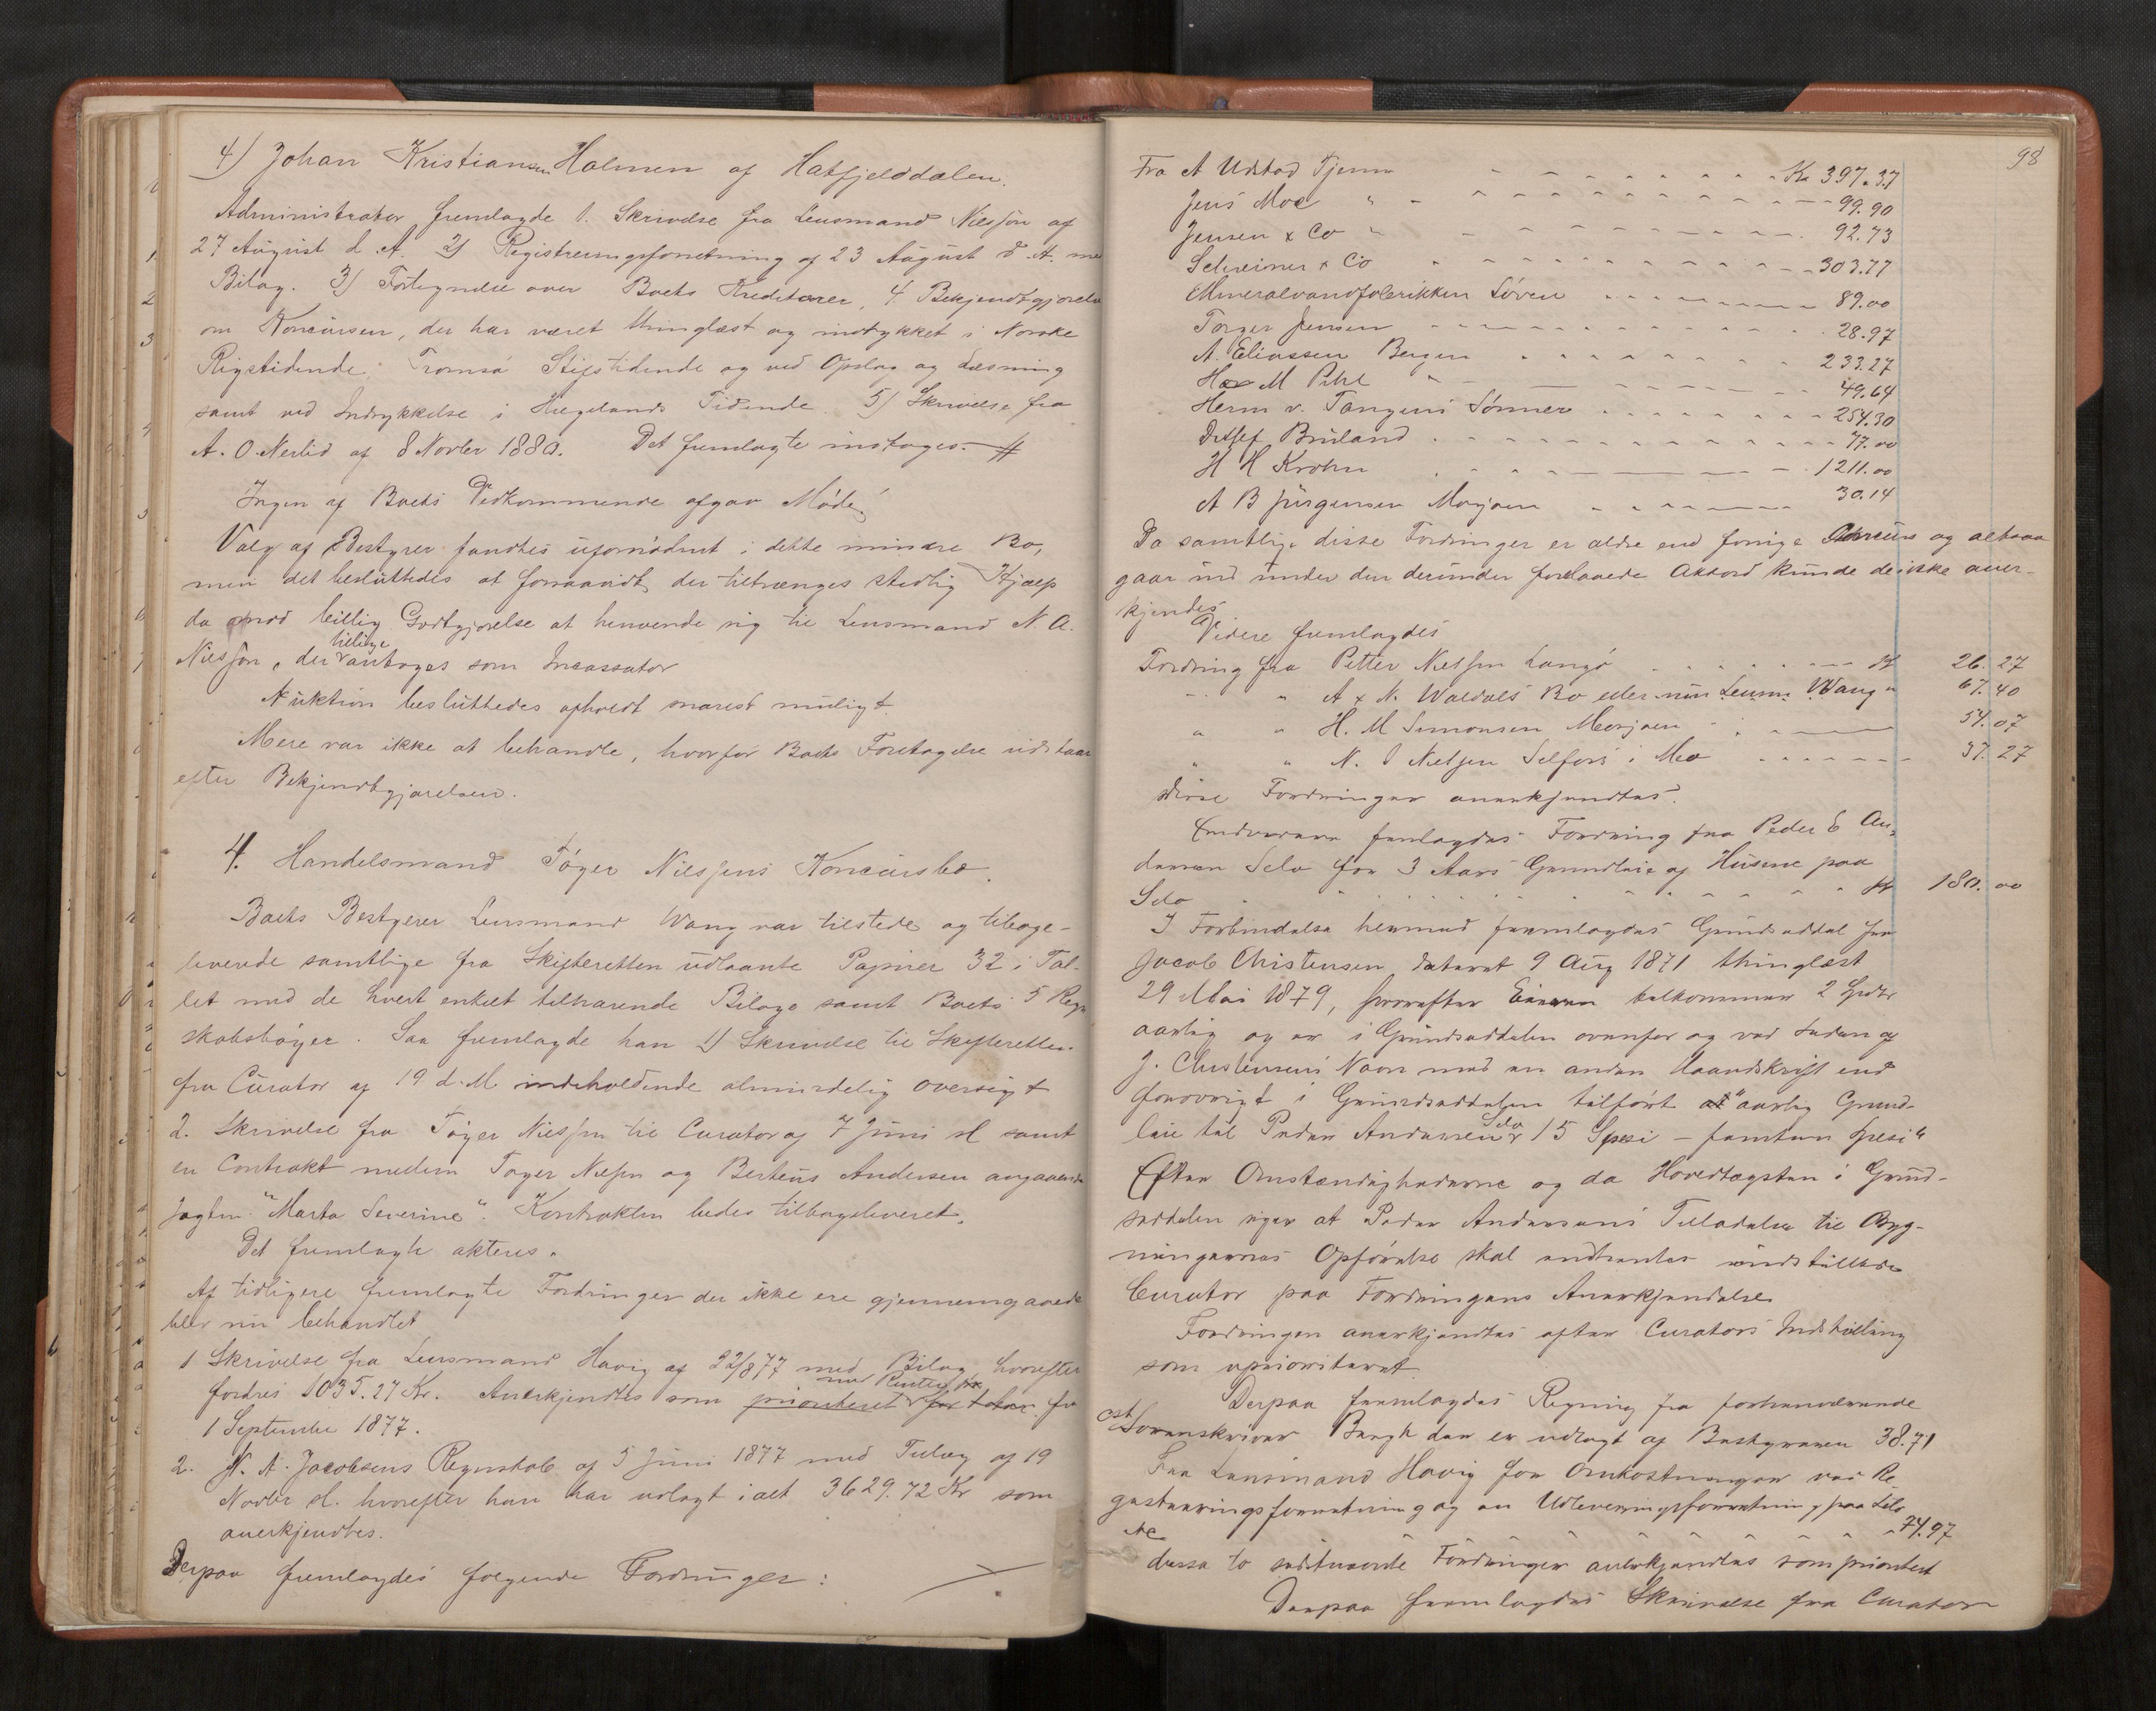 4) Johan Kristiansen Holmen af Hatfjelddalen.
Administrator fremlagde 1. Skrivelse fra Lensmand Nilsson af
27 August d. A. 2) Registreringsforretning af 23 August d. A. med
Bilag. 3) Fortegnelse over Boets Kreditorer, 4. Bekjendtgjørelse
om Koncursen, der har været thinglæst og indrykket i Norske
Rigstidende, Tromsø Stiftstidende og ved Opslag og Læsning
samt ved Indrykkelse i Helgelands Tidende. 5) Skrivelse fra
A. O. Nerlid af 8 Novber 1880. Det fremlagte indtages. #
Ingen af Boets Vedkommende afgav Møde.
Valg af Bestyrer fandtes ufornødent i dette mindre Bo,
men det besluttedes at forsaavidt der tiltrænges stedlig Hjælp
da mod billig Godtgjørelse at henvende sig til Lensmand N. A.
Nilsson, der tillige antages som Incassator
Auktion besluttedes afholdt snarest muligt.
Mere var ikke at behandle, hvorfor Boets Foretagelse udstaar
efter Bekjendtgjørelsen.
4. Handelsmand Tøger Nilssens Koncursbo.
Boets Bestyrer Lensmand Wang var tilstede og tilbage-
leverede samtlige fra Skifteretten udlaante Papirer 32 i Tal-
let med de hvert enkelt tilhørende Bilage samt Boets 5 Regn
skabsbøger. Saa fremlagde han 1) Skrivelse til Skifteretten
fra Curator af 19 d. M. indeholdende almindelig oversigt
2. Skrivelse fra Tøger Nilssen til Curator af 7 Juni sl samt
en Contrakt mellem Tøger Nilsen og Berteus Andersen angaaende
Jagten "Marta Severine". Kontrakten bedes tilbageleveret.
Det fremlagte akteres.
Af tidligere fremlagte Fordringer der ikke ere gjennemgaaede
blev nu behandlet
1 Skrivelse fra Lensmand Havig af 22/8 77 med Bilag hvorefter
fordres 1035.27 Kr. Anerkjendtes som prioriteret med Renter fra
1 September 1877.
2. N. A. Jacobsens Regnskab af 5 Juni 1877 med Tillæg af 19
Novbr sl. hvorefter han har udlagt ialt 3629.72 Kr som
anerkjendtes.
Derpaa fremlagdes følgende Fordringer:
98
Fra A Udstad Tjenna Kr 397.37
Jens Moe " 99.90
Jensen & Co " 92.73
Schreiner & Co " 303.77
Mineralvandfabrikken Løven 89.00
Torger Jensen 28.97
A. Eliassen Bergen 233.27
H M Pihl " 49.64
Herm v. Tangens Sønner 254.30
Detlef Bruland 77.00
H H Krohn 1211.00
A B Jürgensen Mosjøen 30.14
Da samtlige disse Fordringer er ældre end forrige Concurs og altsaa
gaar ind under den derunder Akkord kunde de ikke aner-
kjendes
Videre fremlagdes
Fordring fra Petter Nielsen Langø Kr 26.27
" " A & N. Waldals Bo eller nu Lensm Wang " 67.40
" " H. M Simonsen Mosjøen 54.07
" " N. O Nielsen Selfors i Mo 37.27
disse Fordringer anerkjendtes.
Endvidere fremlagdes Fordring fra Peder E An-
dersen Selø for 3 Aars Grundleie af Husene paa
Selø Kr 180.00
I Forbindelse hermed fremlagdes Grundseddel fra
Jacob Christensen dateret 9 Aug 1871 thinglæst
29 Mai 1879, hvorefter tilkommer 2 Spdlr
aarlig og er i Grundseddelen ovenfor og ved Siden af
J. Christensens Navn med en anden Haandskrift end
forøvrigt i Grundseddelen tilført at "aarlig Grund-
leie til Peder Andersen Selø 15 Spesi – femten Spesi"
Efter Omstændighederne og da Hovedtexten i Grund-
seddelen siger at Peder Andersens Tilladelse til Byg-
ningernes Opførelse skal indhentes indstillede
Curator paa Fordringens Anerkjendelse
Fordringen anerkjendtes efter Curators Indstilling
som uprioriteret
Derpaa fremlagdes Regning fra forhenværende
cst Sorenskriver Bergh der er udlagt af Bestyreren 38.71
Fra Lensmand Havig for Omkostninger ved Re
gistreringsforretning og en Udleveringsforretning paa Selø
74.97
disse to sidstnævnte Fordringer anerkjendtes som prioritert
Derpaa fremlagdes Skrivelse fra Curator